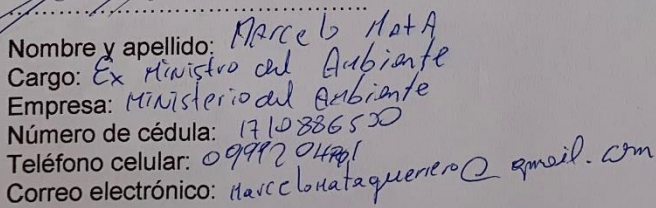 Nombre y apellido: Marcelo Mata
Cargo: Ex Ministro del Ambiente
Empresa: Ministerio del Ambiente
Número de cédula:
Teléfono celular:
Correo electrónico: marcelomataguerrero@gmail.com